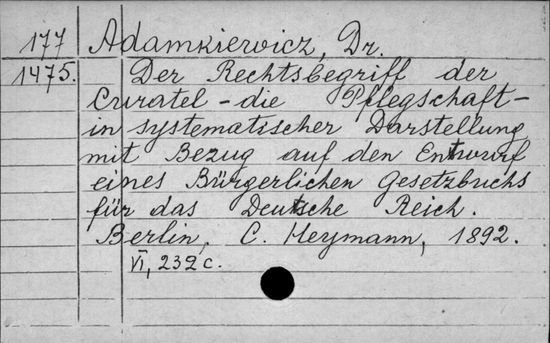 177 Adamkiewicz, Dr.
1475. Der Rechtsbegriff der
Curatel - die Pflegschaft -
in systematischer Darstellung
mit Bezug auf den Entwurf
eines Bürgerlichen Gesetzbuchs
für das Deutsche Reich.
Berlin, C. Heymann, 1892.
VI, 232 c.